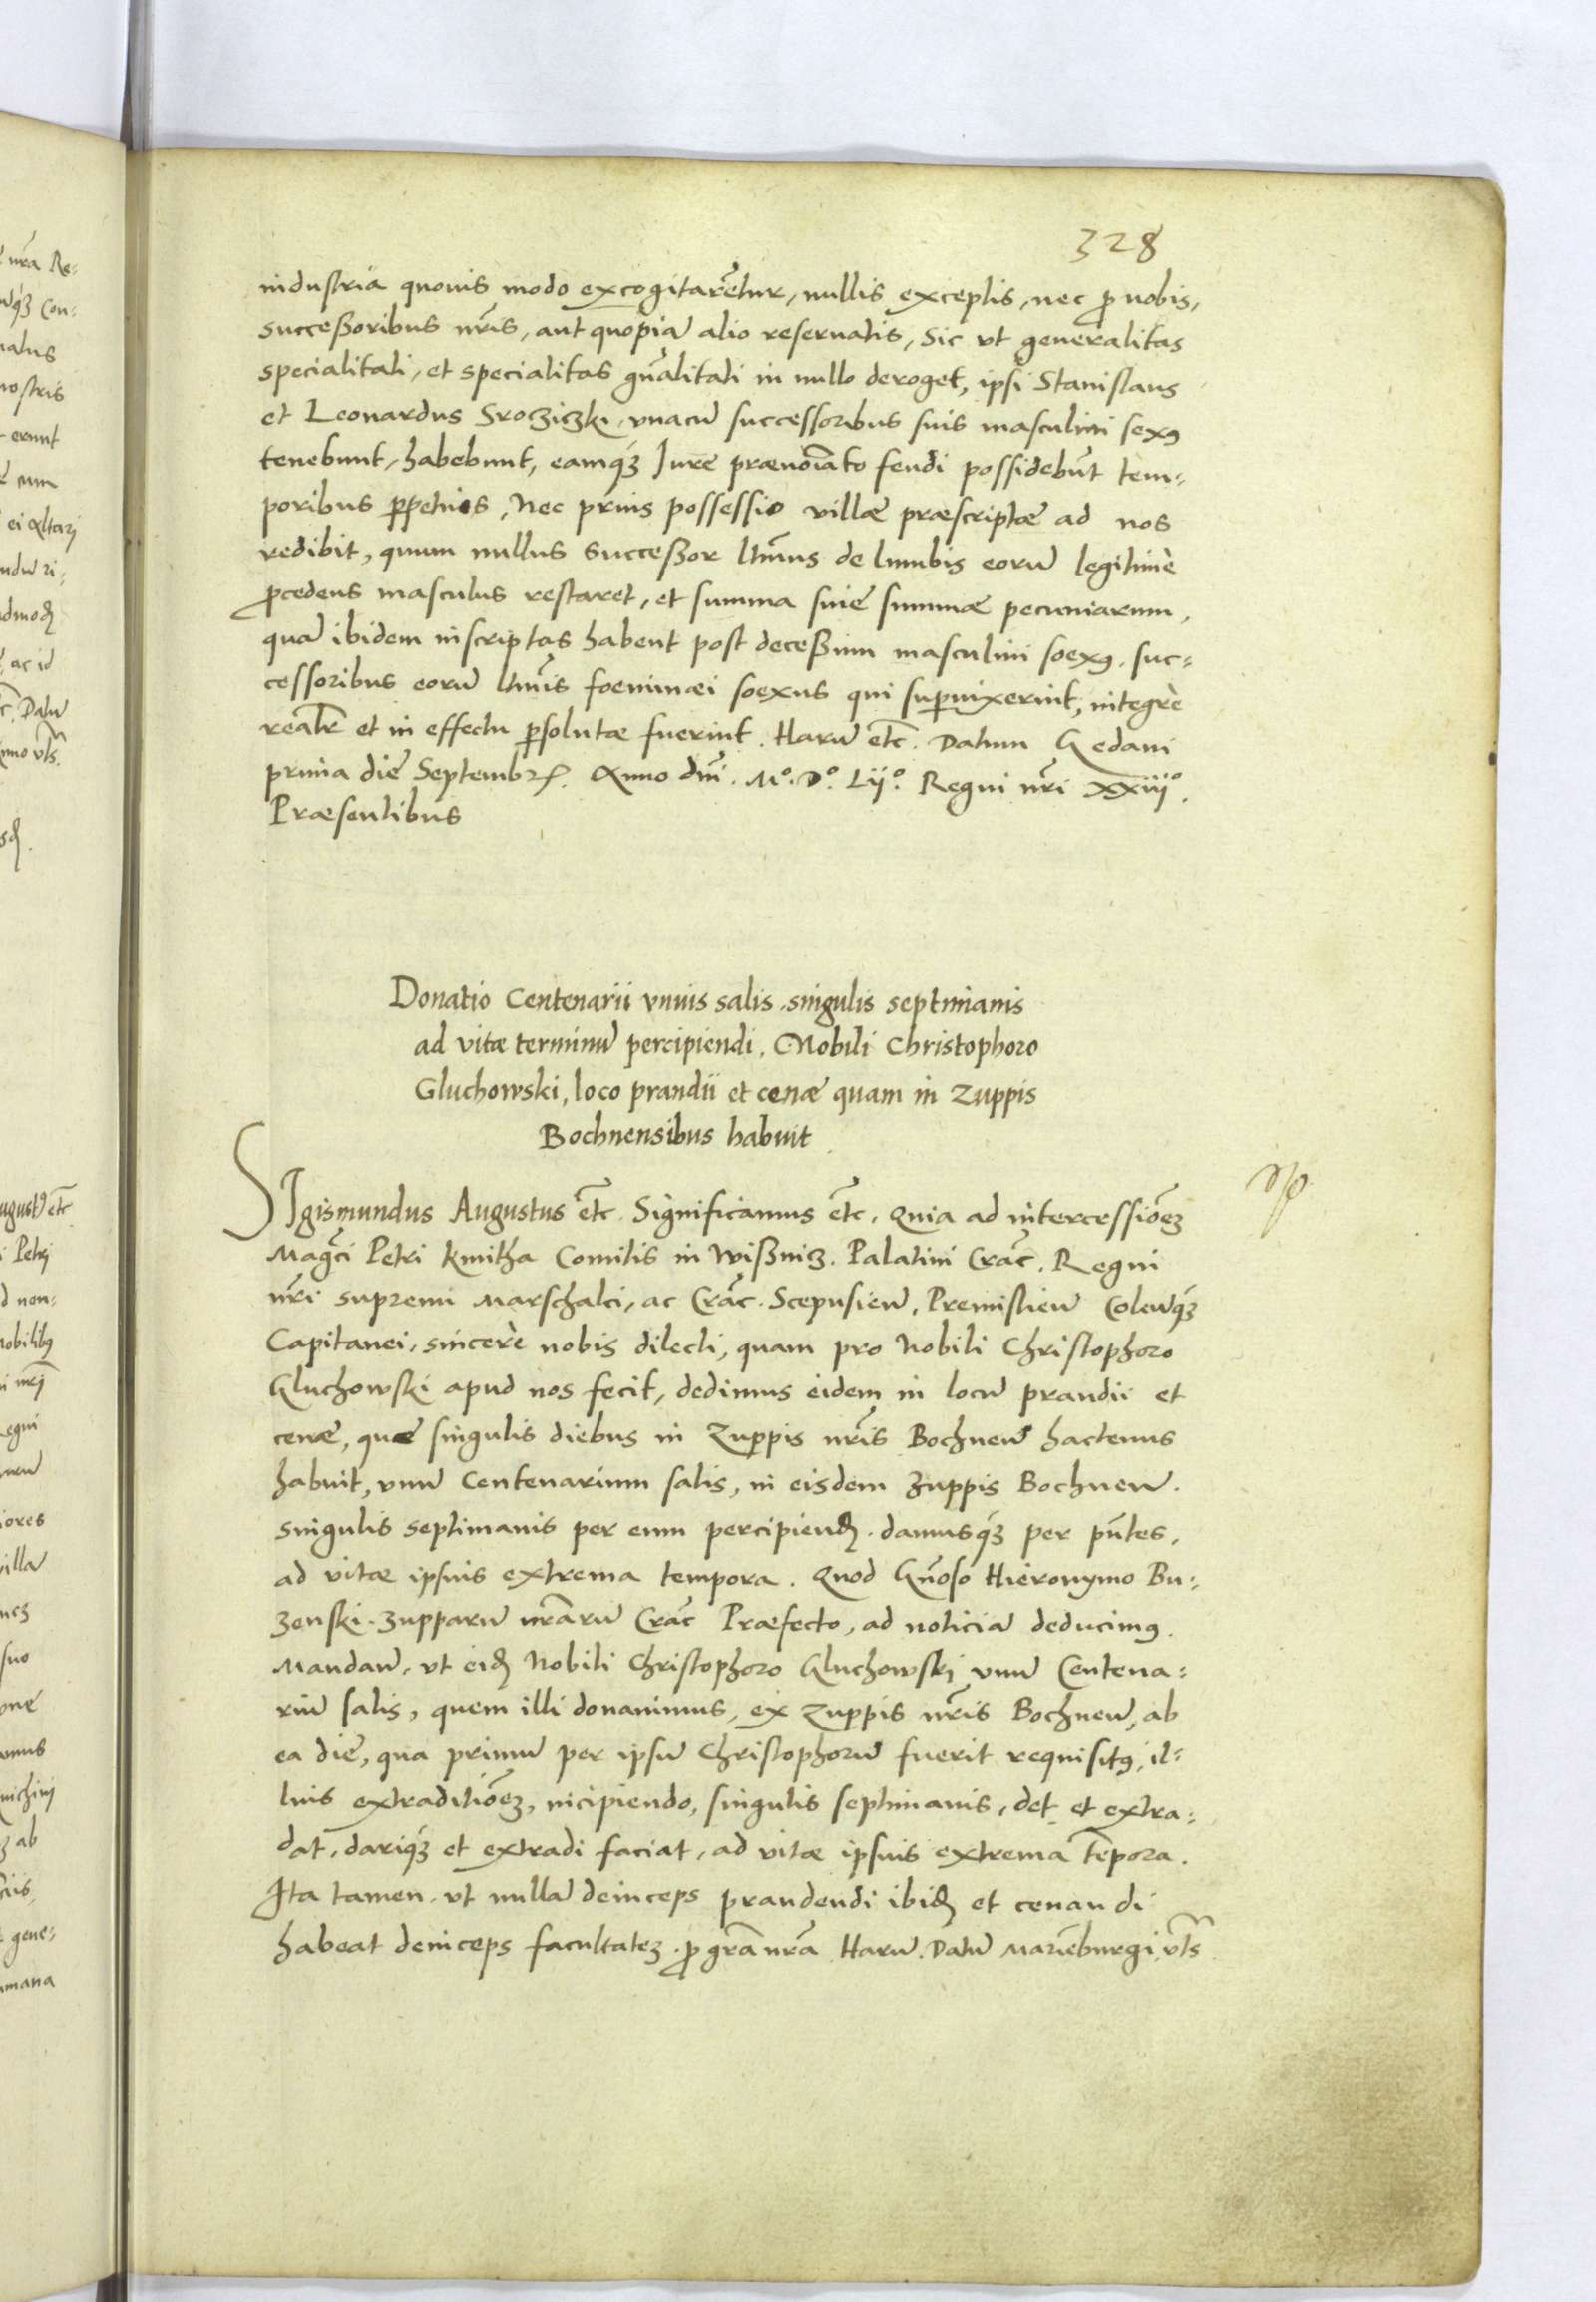 328
industria quovis modo excogitarẽtur, nullis exceptis, nec ꝓ nobis,
succeßoribus nr̃is, aut quopiã alio reservatis, Sic vt generalitas
specialitati, et specialitas gñalitati in nullo deroget, ipsi Stanislaus
et Leonardus Srocziczki, vnacũ successoribus suis masculini sexꝯ
tenebunt, habebunt, eamqꝫ Jure prænoĩato feudi possidebũt tem-
poribus ꝑpetuis, Nec prius possessio villæ præscriptæ ad nos
redibit, quum nullus Succeßor ltĩmus de lumbis eorũ legitimè
ꝓcedens masculus restaret, et summa sive summæ pecuniarum,
quã ibidem inscriptas habent post deceßum masculini soexꝯ, suc-
cessoribus eorũ ltĩmis foeminæi soexus qui suꝑvixerint, integrè
realr̃ et in effectu ꝑsolutæ fuerint. Harũ etc̃. Datum Gedani
prima die Septembrꝭ. Anno dñi. Mº. Dº. Lijº. Regni nr̃i XXiijº.
Præsentibus
Donatio Centenarii vnius salis, singulis septimanis
ad vitæ terminũ percipiendi, Nobili Christophoro
Gluchowski, loco prandii et cenæ quam in Zuppis
Bochnensibus habuit
SIgismundus Augustus etc̃. Significamus etc̃. Quia ad intercessiõeꝫ
Mag̃ci Petri Kmitha Comitis in Wißnicz. Palatini Crac̃. Regni
nr̃i supremi Marschalci, ac Crac̃. Scepusieñ, Premislieñ Coleñqꝫ
Capitanei, sincerè nobis dilecti, quam pro Nobili Christophoro
Gluchowski apud nos fecit, dedimus eidem in locũ prandii et
cenæ, quæ singulis diebus in Zuppis nr̃is Bochneñ hactenus
habuit, vnũ Centenarium salis, in eisdem zuppis Bochneñ.
singulis septimanis per eum percipiendꝫ. damusqꝫ per pñtes,
ad vitæ ipsius extrema tempora. Quod Gñoso Hieronymo Bu-
zenski. zupparũ nr̃arũ Crac̃ Præfecto, ad noticiã deducimꝯ.
Mandañ, vt eidꝫ Nobili Christophoro Gluchowskj vnũ Centena-
riũ salis, quem illi donavimus, ex Zuppis nr̃is Bochneñ, ab
ea die, qua primũ per ipsũ Christophorũ fuerit requisitꝯ, il-
lius extraditiõeꝫ, incipiendo, singulis septimanis, det et extra-
dat, dariqꝫ et extradi faciat, ad vitæ ipsius extrema tẽpora.
Ita tamen. vt nullã deinceps prandendi ibidꝫ et cenandi
habeat deinceps facultateꝫ. ꝓ gr̃a nr̃a Harũ. Datũ Mariẽburgi, vt̃s